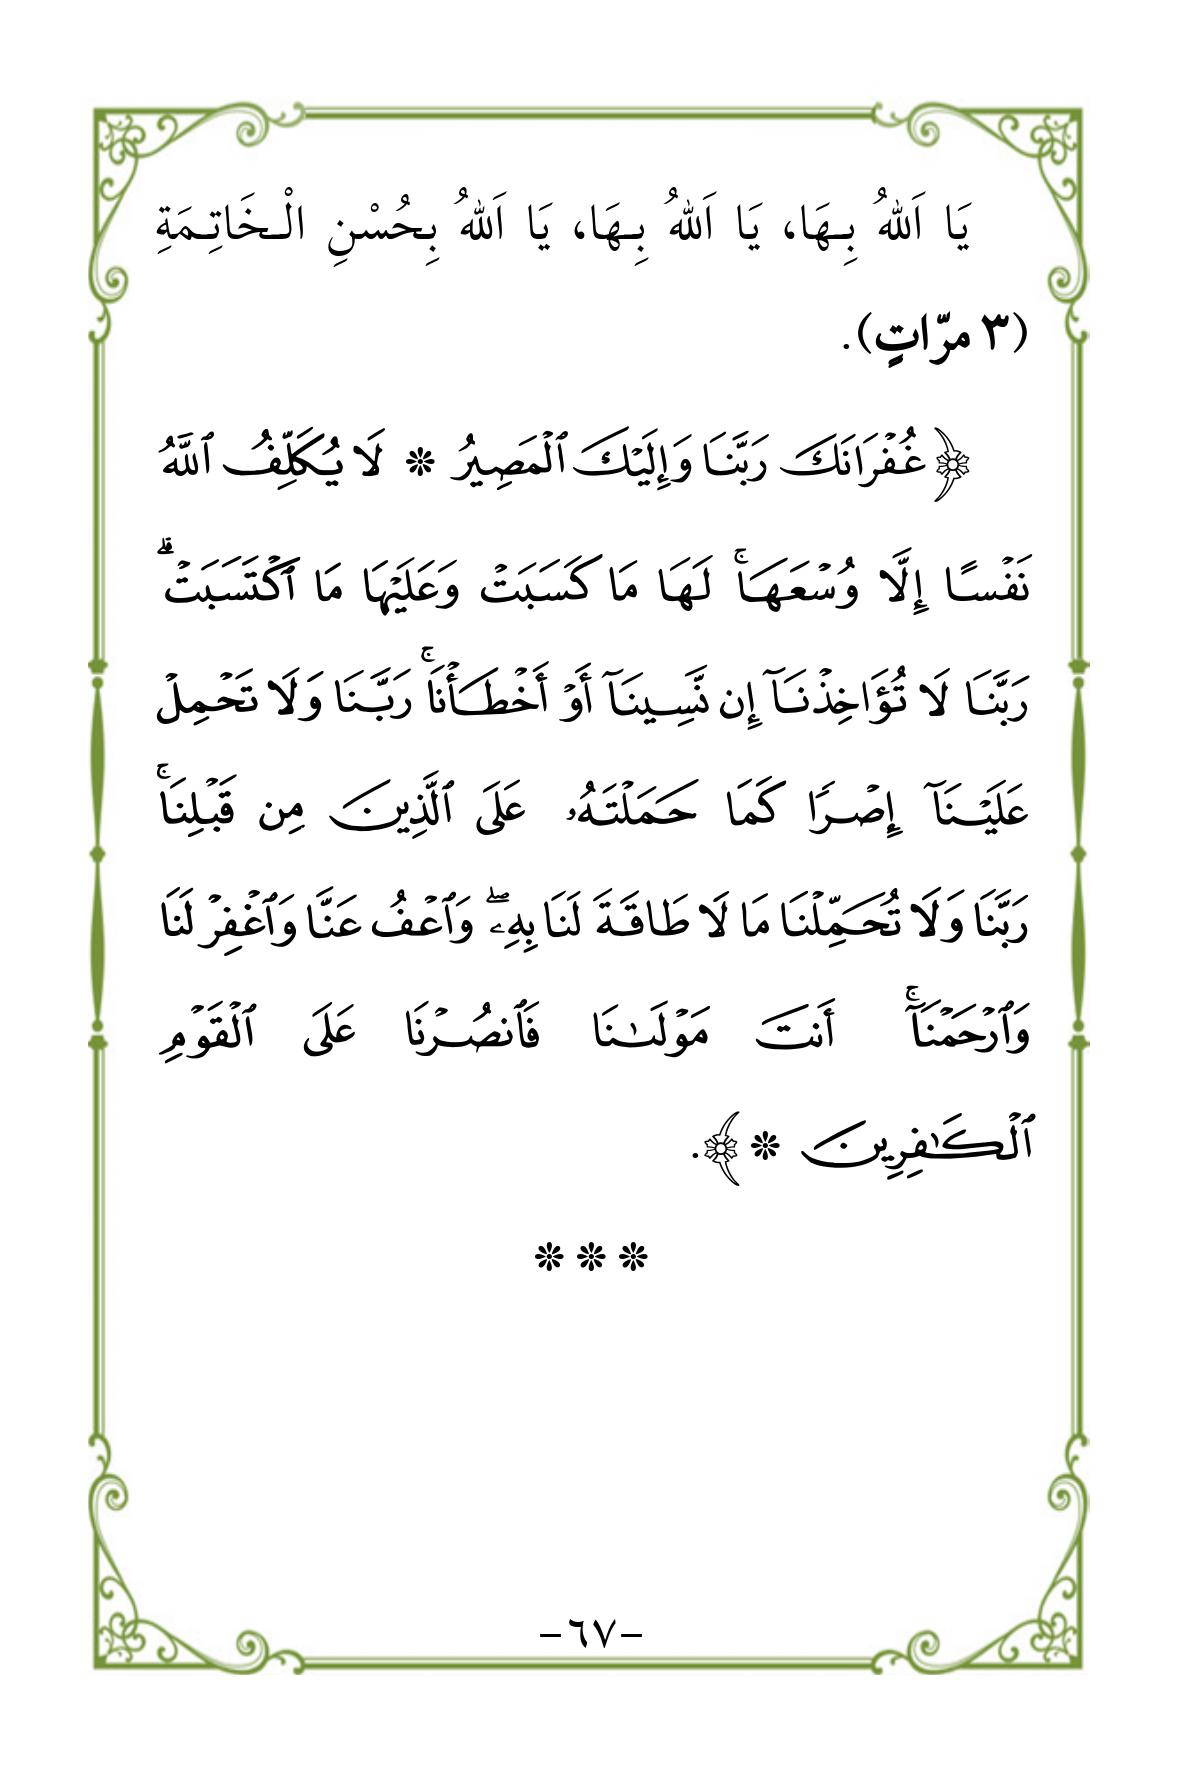 يَا اَللهُ بِهَا، يَا اَللهُ بِهَا، يَا اَللهُ بِحُسْنِ الْخَاتِمَةِ
(٣ مرّاتٍ).
﴿غُفۡرَانَكَ رَبَّنَا وَإِلَيۡكَ ٱلۡمَصِيرُ ❊ لَا يُكَلِّفُ ٱللَّهُ
نَفۡسًا إِلَّا وُسۡعَهَاۚ لَهَا مَا كَسَبَتۡ وَعَلَيۡهَا مَا ٱكۡتَسَبَتۡۗ
رَبَّنَا لَا تُؤَاخِذۡنَآ إِن نَّسِينَآ أَوۡ أَخۡطَأۡنَاۚ رَبَّنَا وَلَا تَحۡمِلۡ
عَلَيۡنَآ إِصۡرًا كَمَا حَمَلۡتَهُۥ عَلَى ٱلَّذِينَ مِن قَبۡلِنَاۚ
رَبَّنَا وَلَا تُحَمِّلۡنَا مَا لَا طَاقَةَ لَنَا بِهِۦۖ وَٱعۡفُ عَنَّا وَٱغۡفِرۡ لَنَا
وَٱرۡحَمۡنَآۚ أَنتَ مَوۡلَىٰنَا فَٱنصُرۡنَا عَلَى ٱلۡقَوۡمِ
ٱلۡكَٰفِرِينَ ❊﴾.
❊ ❊ ❊
-٦٧-